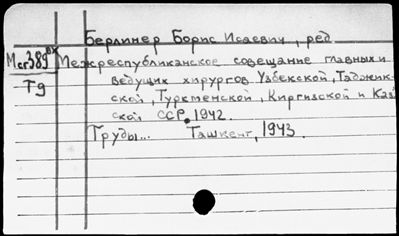 Берлинер Борис Исаевич, ред
Мег389вх Межреспубликанское совещание главных и
Т9 ведущих хирургов Узбекской, Таджик-
ской, Туркменской, Киргизской и Каз
ской ССР. 1942.
Труды... Ташкент, 1943.